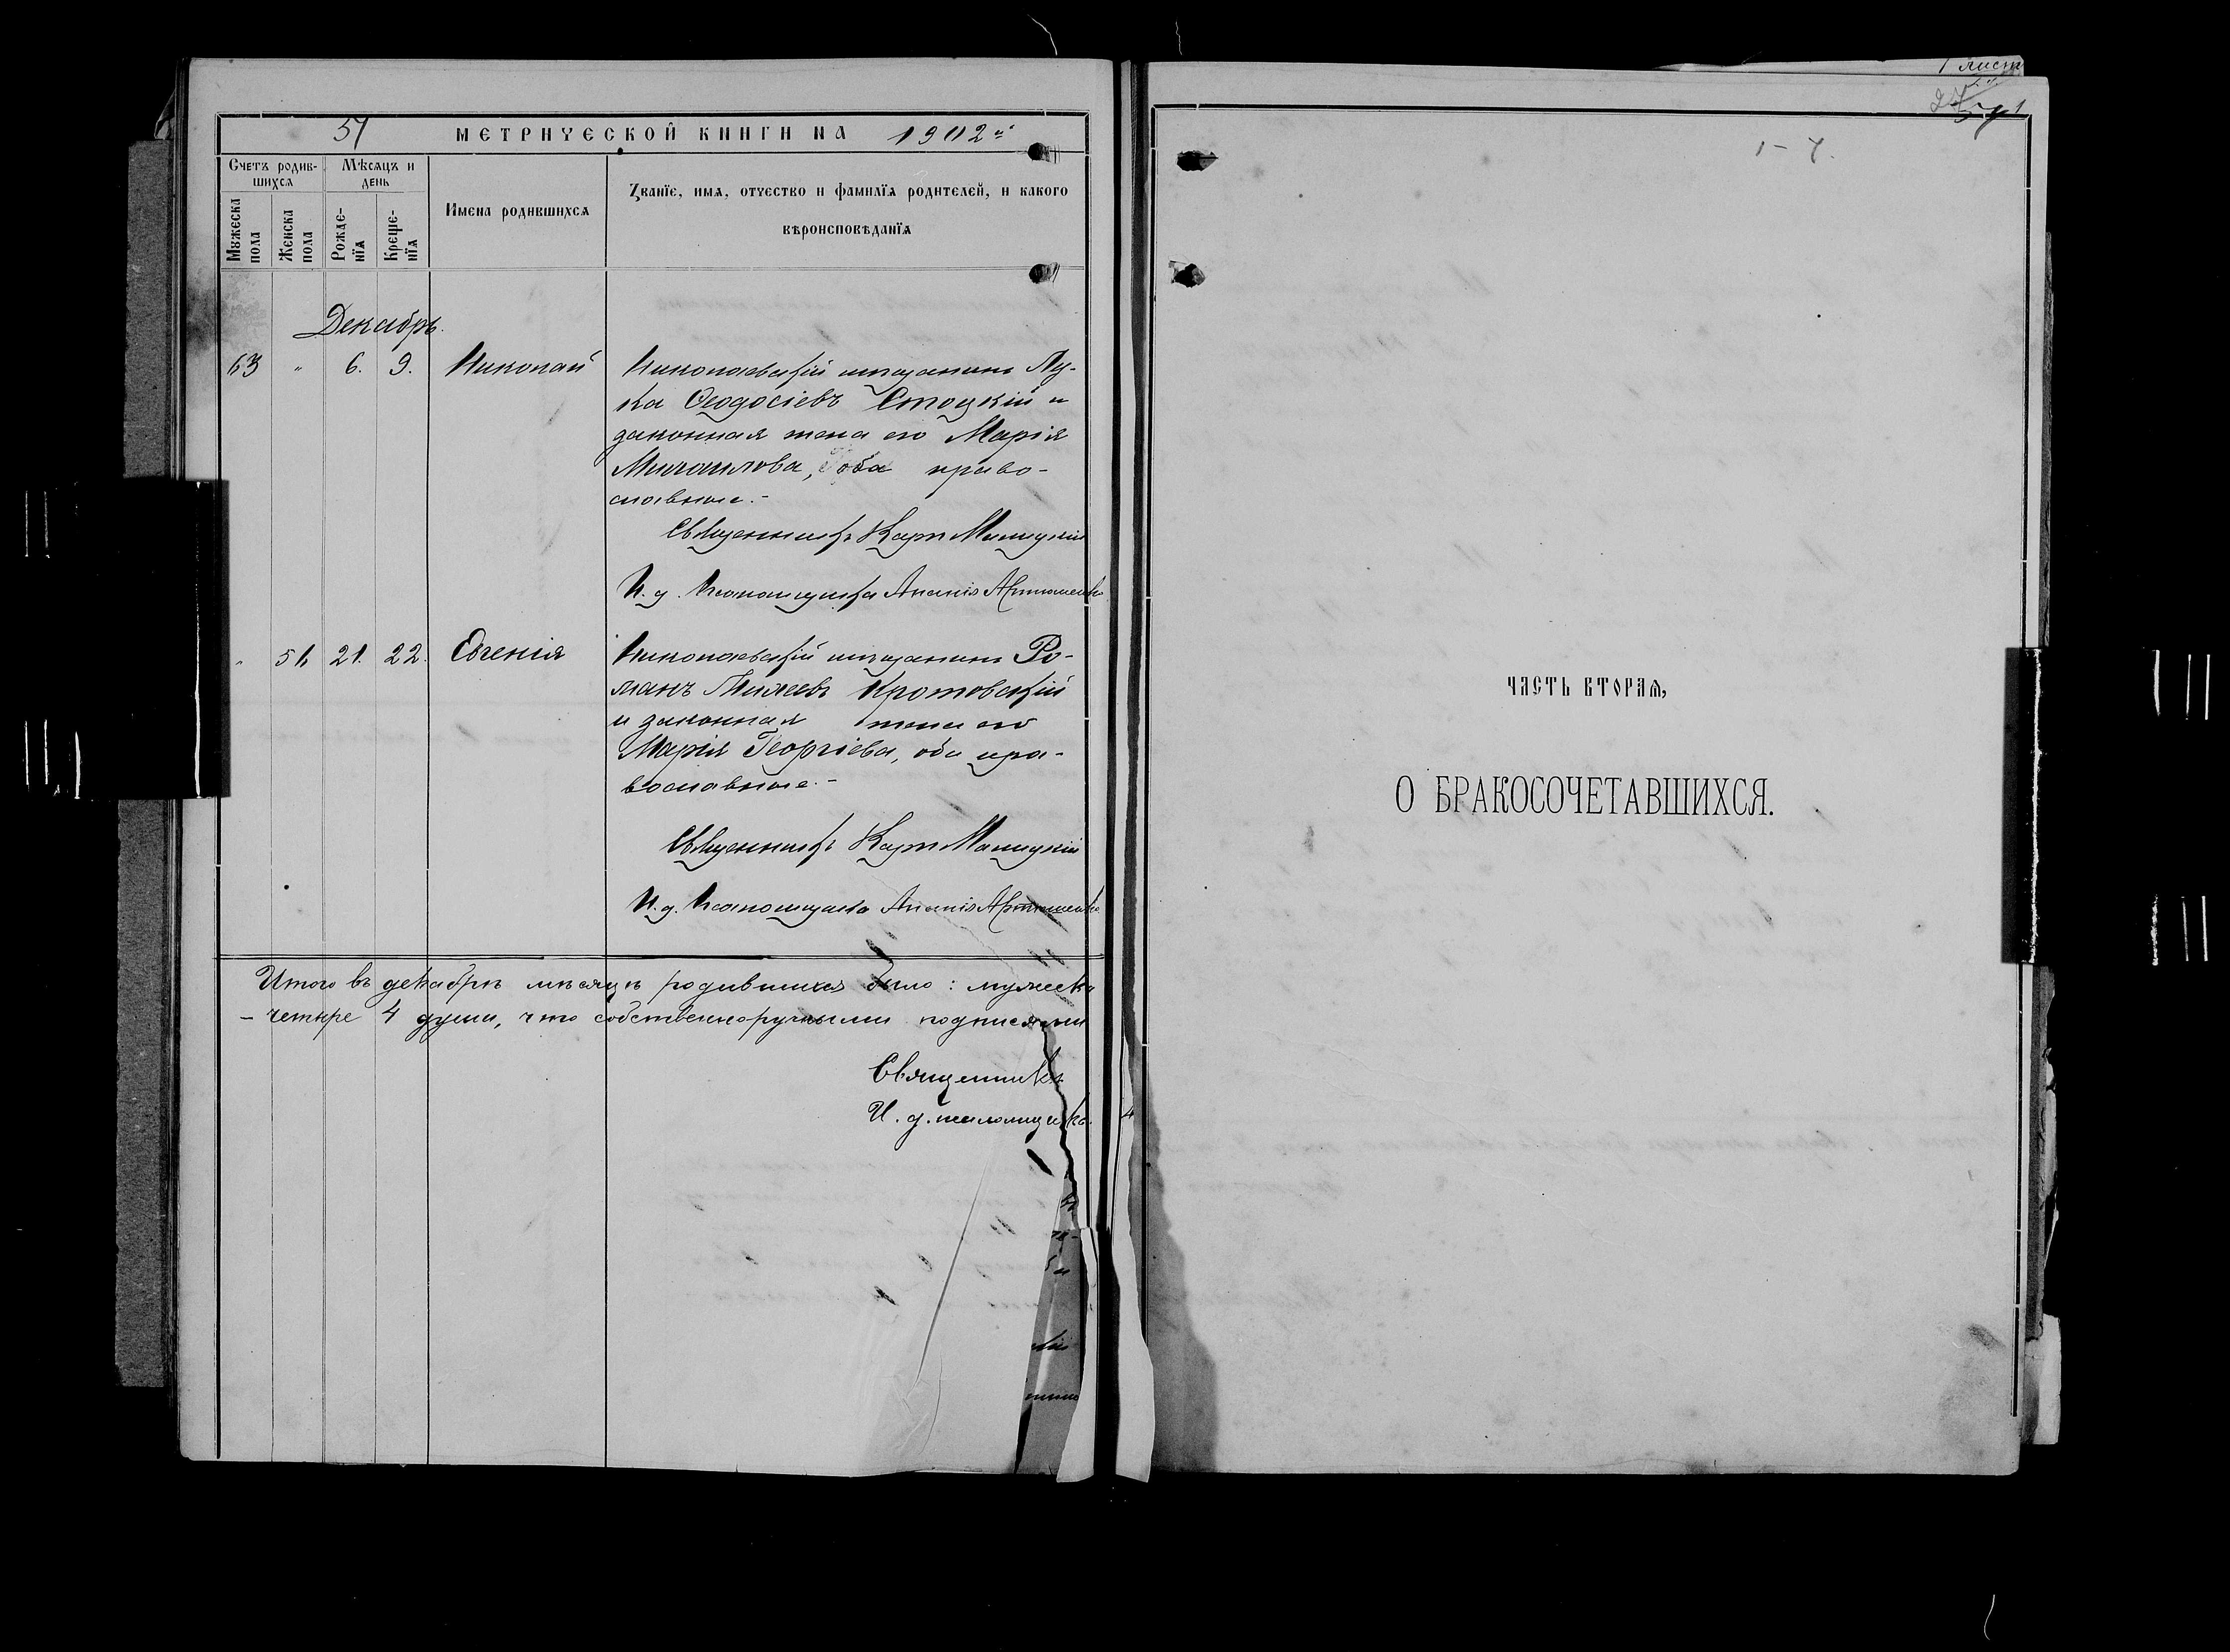 51 МЕТРИЧЕСКОЙ КНИГИ НА 1902 й
Счетъ родив-
шихся
Мѣсяцъ и
день
Мужеска
пола
Женска
пола
Рожде-
нїя
Креще-
нїя
Имена родившихся
Званїе, имя, отчество и фамилїя родителей, и какого
вѣроисповѣданїя
Декабрь.
63 " 6. 9. Николай
Николаевскій мѣщанинъ Лу-
ка Ѳеодосіевъ Стоцкій и
законная жена его Марія
Михаилова, оба право-
славные.-
Священникъ Карп
И. д. псаломщика
" 21. 22. Евгенія
Николаевскій мѣщанинъ Ро-
манъ Кротовскій
и законная жена его
Марія Георгіева, оба пра-
вославные.-
Священникъ Карп
И. д. псаломщика
Итого въ декабрѣ мѣсяцѣ родившихся было: мужеска
- четыре 4 души, что собственноручными подписями
Священникъ
И. д. псаломщика
1 лист
1 - 7.
ЧАСТЬ ВТОРАЯ,
О БРАКОСОЧЕТАВШИХСЯ.